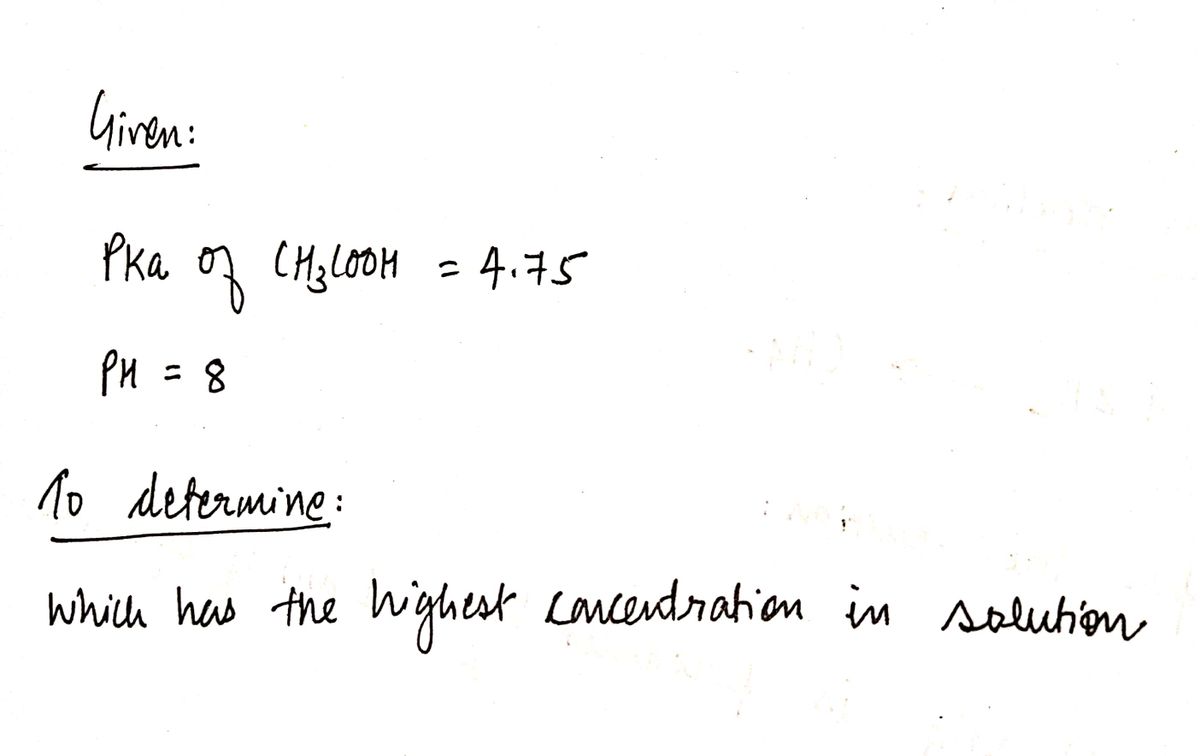 Given:
Pka of CH3COOH = 4.75
PH = 8
To determine:
which has the highest concentration in solution